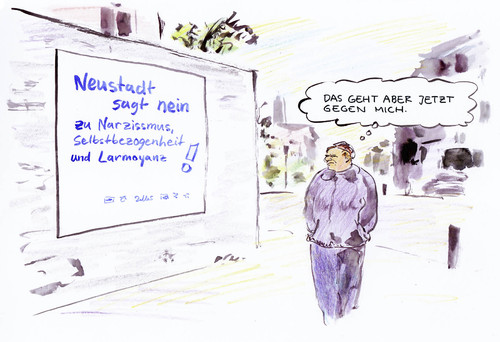 Neustadt
sagt nein
zu Narzissmus,
Selbstbezogenheit
und Larmoyanz!
DAS GEHT ABER JETZT
GEGEN MICH.